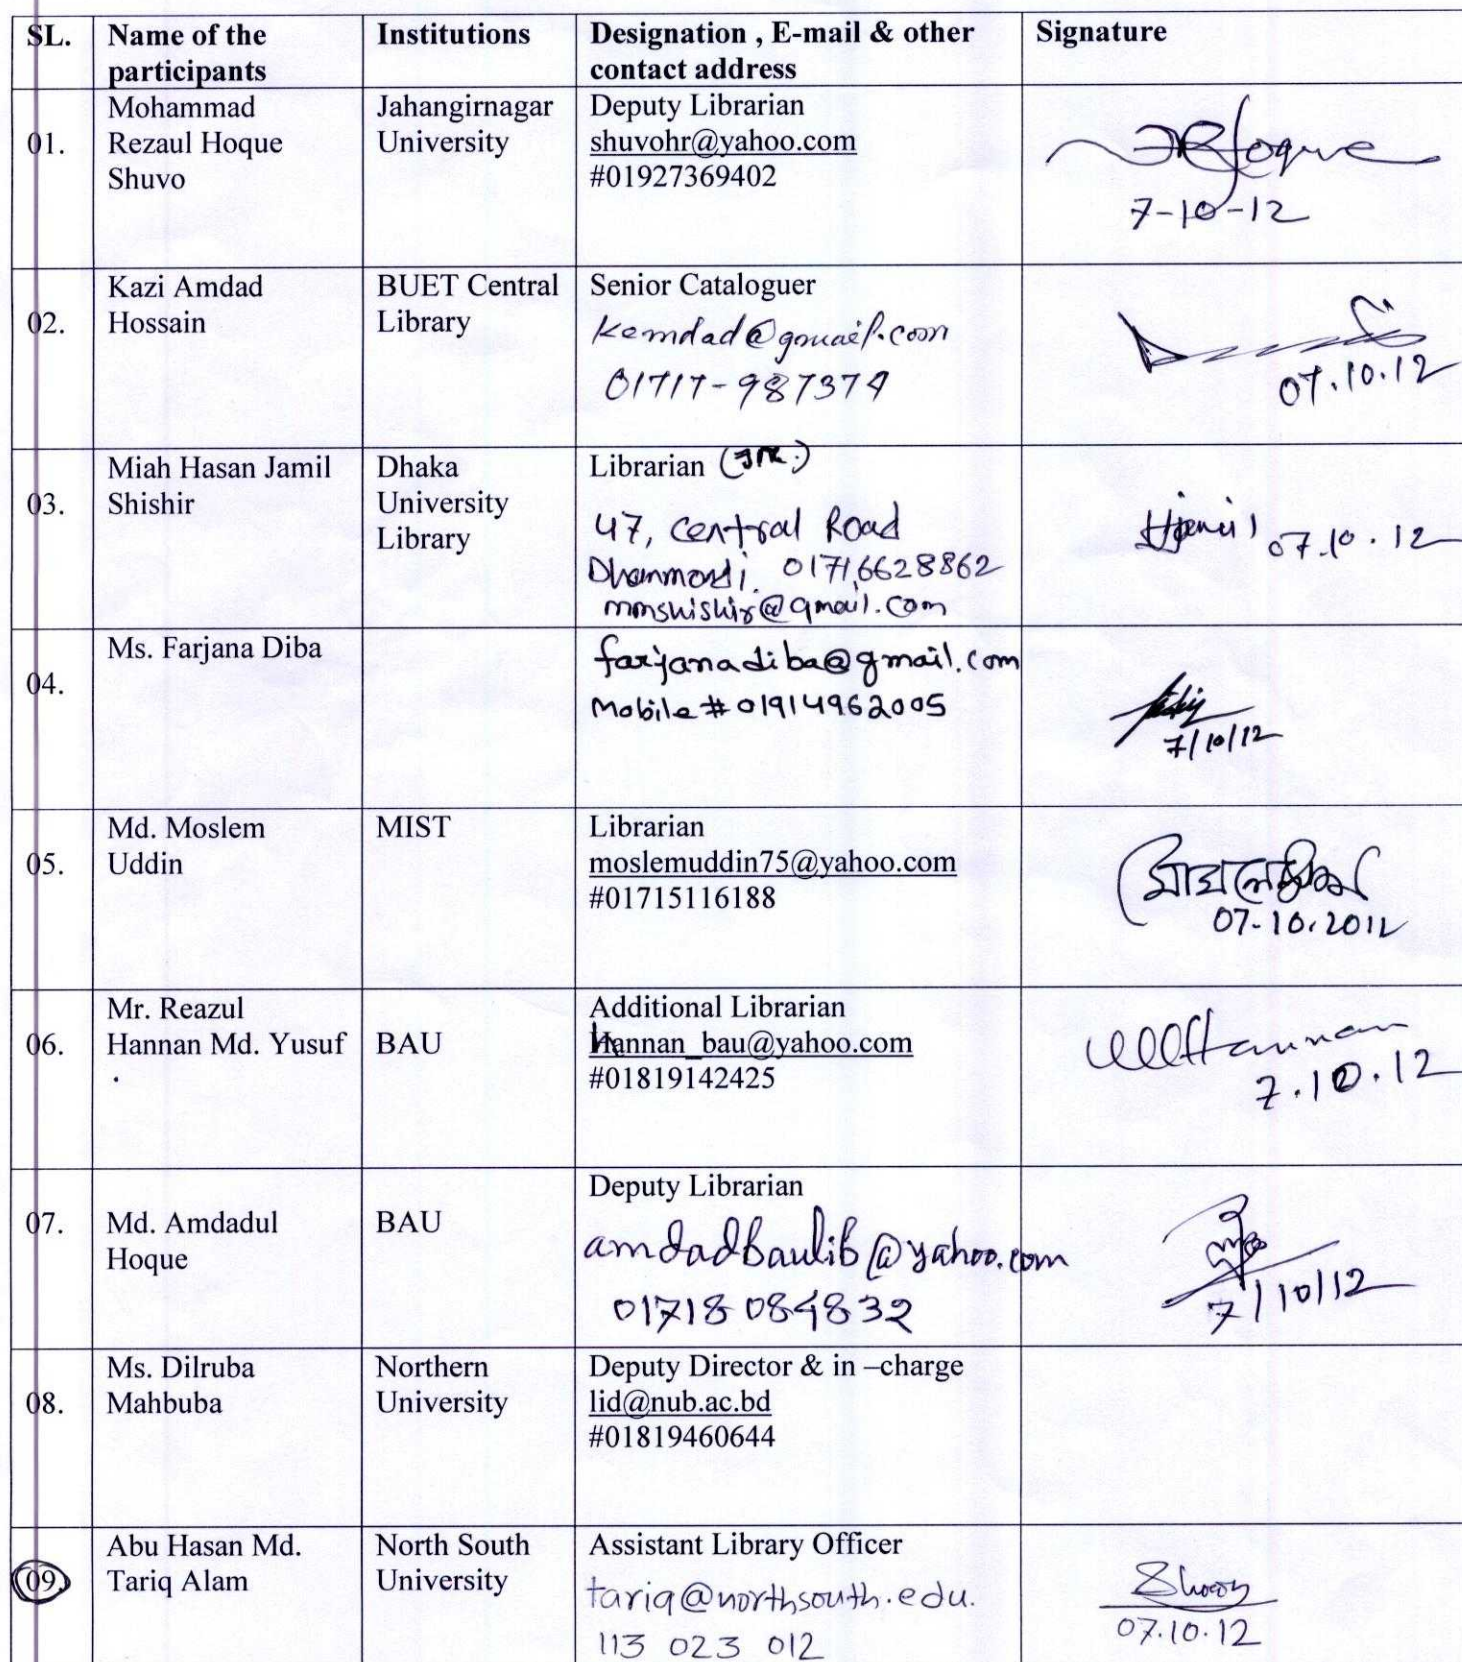 SL. Name of the participants Institutions Designation , E-mail & other contact address Signature
01. Mohammad Rezaul Hoque Shuvo
Jahangirnagar University
Deputy Librarian
shuvohr@yahoo.com
#01927369402
7-10-12
02. Kazi Amdad Hossain
BUET Central Library
Senior Cataloguer
kemdad@gmail.com
01717-987379
07.10.12
03. Miah Hasan Jamil Shishir
Dhaka University Library
Librarian (Jnr.)
47, Central Road
Dhanmondi. 01716628862
mmshishir@gmail.com
Hjamil 07.10.12
04. Ms. Farjana Diba
farjanadiba@gmail.com
Mobile # 01914962005
7/10/12
05. Md. Moslem Uddin
MIST
Librarian
moslemuddin75@yahoo.com
#01715116188
07.10.2012
06. Mr. Reazul Hannan Md. Yusuf
BAU
Additional Librarian
hannan_bau@yahoo.com
#01819142425
7.10.12
07. Md. Amdadul Hoque
BAU
Deputy Librarian
amdadbaulib@yahoo.com
01718084832
7/10/12
08. Ms. Dilruba Mahbuba
Northern University
Deputy Director & in –charge
lid@nub.ac.bd
#01819460644
09. Abu Hasan Md. Tariq Alam
North South University
Assistant Library Officer
tariq@northsouth.edu.
113 023 012
07.10.12